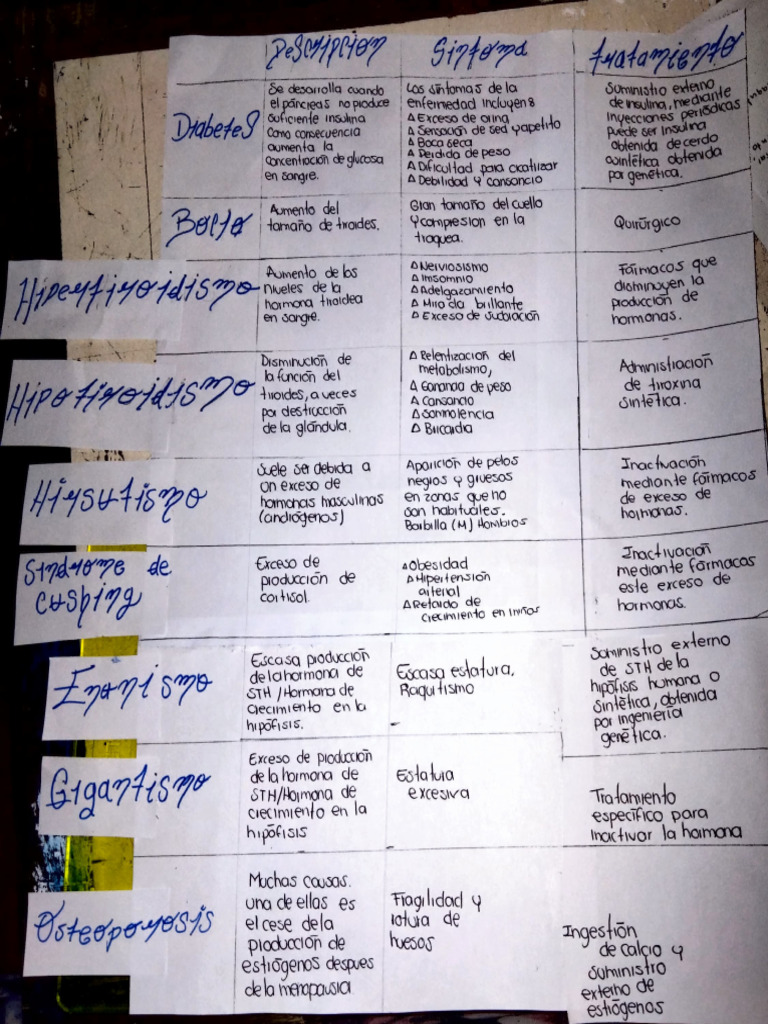 Descripcion
Sintoma
tratamiento
Diabetes
Se desarrolla cuando
el páncreas no produce
suficiente insulina
como consecuencia
aumenta la
concentración de glucosa
en sangre.
Los síntomas de la
enfermedad incluyen:
Δ Exceso de orina
Δ Sensación de sed y apetito
Δ Boca seca
Δ Perdida de peso
Δ Dificultad para cicatrizar
Δ Debilidad y cansancio
Suministro externo
de insulina, mediante
inyecciones periódicas
puede ser insulina
obtenida de cerdo
o sintética obtenida
por genética.
Bocio
Aumento del
tamaño de tiroides.
Gran tamaño del cuello
y compresion en la
traquea.
Quirúrgico
Hipertiroidismo
Aumento de los
niveles de la
hormona tiroidea
en sangre.
Δ Nerviosismo
Δ Imsomnio
Δ Adelgazamiento
Δ Mirada brillante
Δ Exceso de sudoración
Fármacos que
disminuyen la
producción de
hormonas.
Hipotiroidismo
Disminución de
la función del
tiroides, a veces
por destrucción
de la glándula.
Δ Relentización del
metabolismo,
Δ Ganancia de peso
Δ Cansancio
Δ Somnolencia
Δ Bricardia
Administración
de tiroxina
sintética.
Hirsutismo
Suele ser debida a
un exceso de
hormonas masculinas
(andrógenos)
Aparición de pelos
negros y gruesos
en zonas que no
son habituales.
Barbilla (M) Hombros
Inactivación
mediante fármacos
de exceso de
hormonas.
Sindrome de
cushing
Exceso de
producción de
cortisol.
Δ Obesidad
Δ Hipertensión
arterial
Δ Retardo de
crecimiento en niños
Inactivación
mediante fármacos
este exceso de
hormonas.
Enanismo
Escasa producción
de la hormona de
STH / Hormona de
crecimiento en la
hipófisis.
Escasa estatura,
Raquitismo
Suministro externo
de STH de la
hipófisis humana o
sintética, obtenida
por ingeniería
genética.
Gigantismo
Exceso de producción
de la hormona de
STH/Hormona de
crecimiento en la
hipófisis
Estatura
excesiva
Tratamiento
específico para
inactivar la hormona
Osteoporosis
Muchas causas.
una de ellas es
el cese de la
producción de
estrógenos despues
de la menopausia
Fragilidad y
rotura de
huesos
Ingestión
de calcio y
suministro
externo de
estrógenos